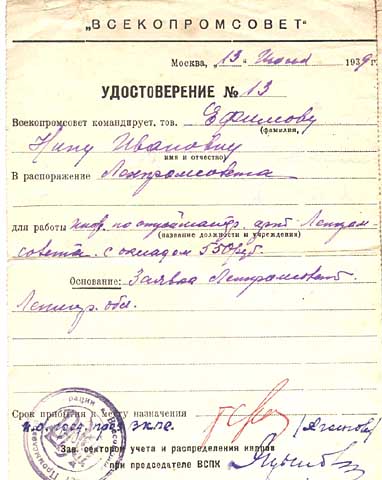 „ВСЕКОПРОМСОВЕТ"
Москва, „13" 1939 г.
УДОСТОВЕРЕНИЕ № 13
Всекопромсовет командирует, тов. Ефимову
(фамилия,
Нину Ивановну
имя и отчество)
В распоряжение Ленпромсовета
для работы по арт. Лепром-
(название должности и учреждения)
совета с окладом 550 руб.
Основание: Заявка Ленпромсовет.
Ленингр. обл.
Срок прибытия к месту назначения
Зав. сектором учета и распределения кадров
при председателе ВСПК